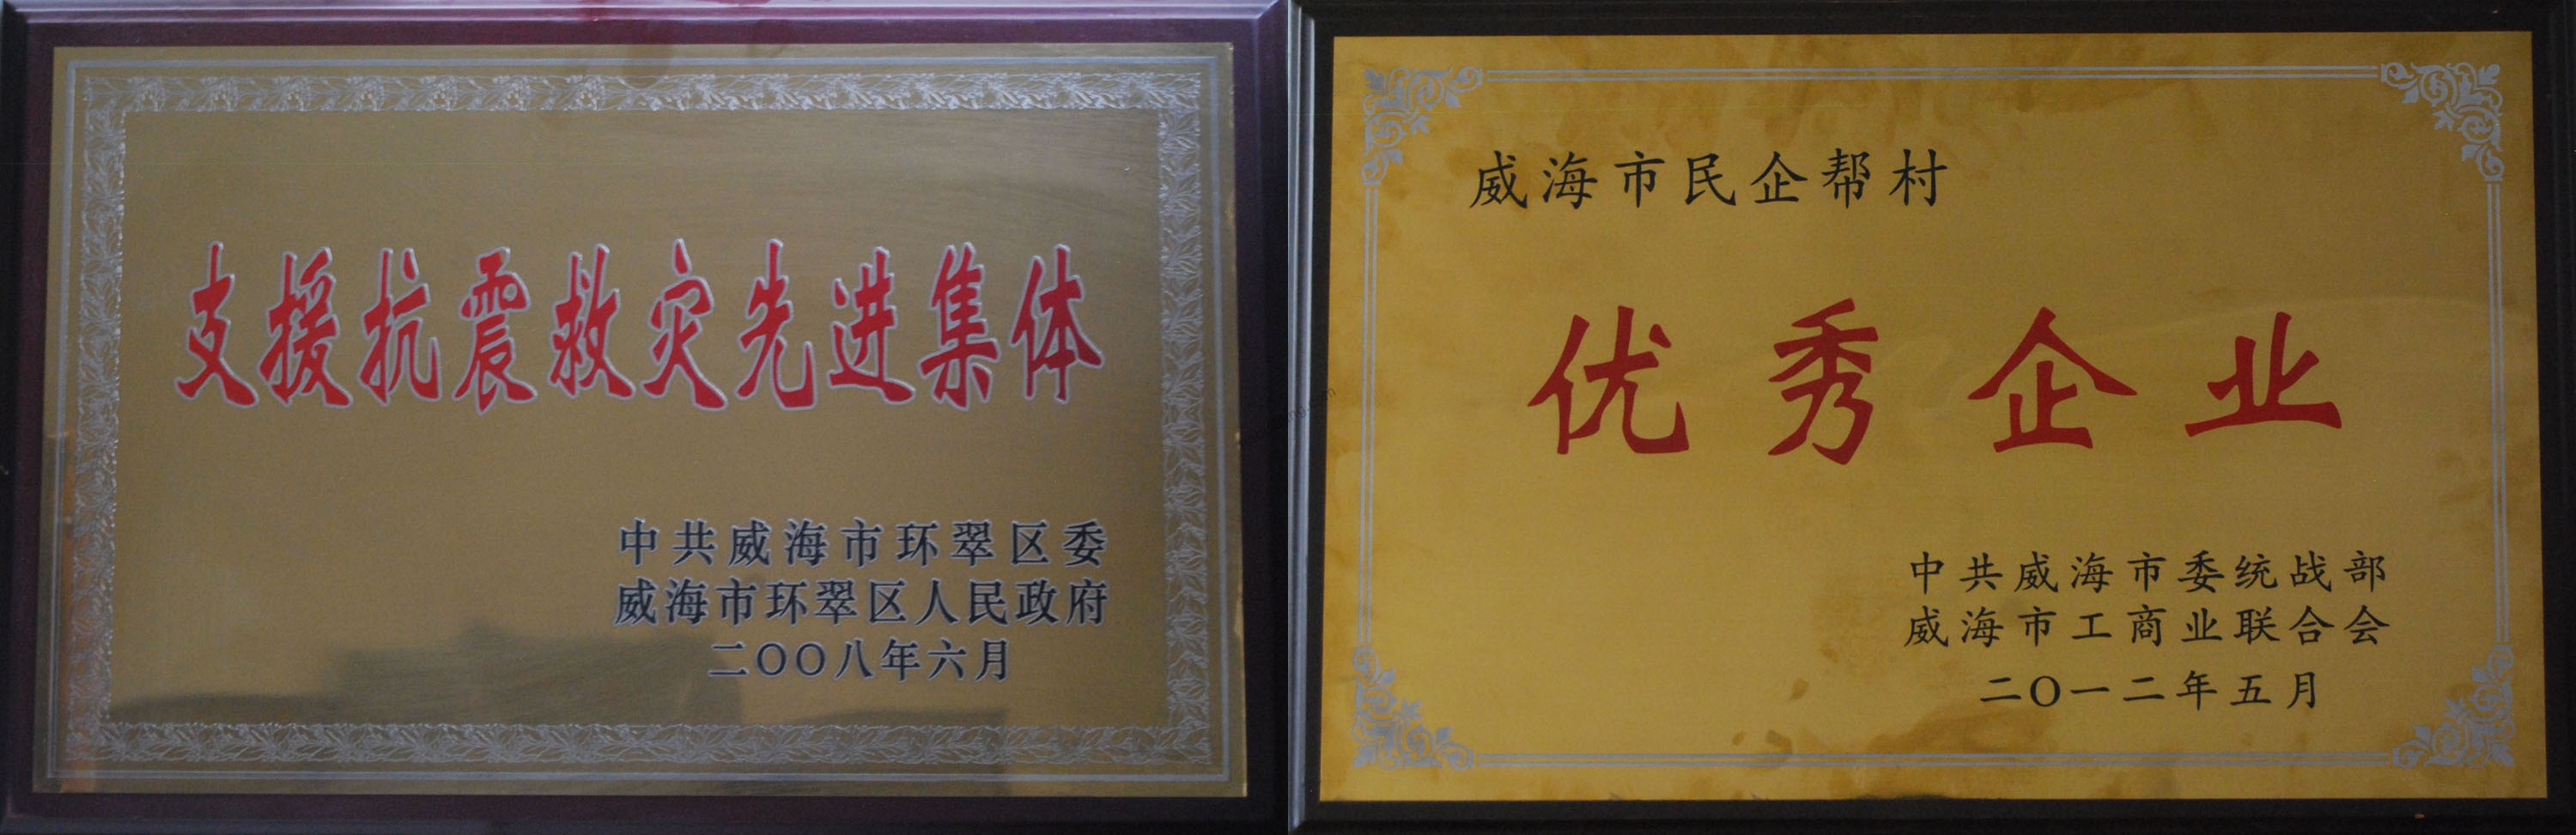 支援抗震救灾先进集体
中共威海市环翠区委
威海市环翠区人民政府
二〇〇八年六月
威海市民企帮村
优秀企业
中共威海市委统战部
威海市工商业联合会
二〇一二年五月